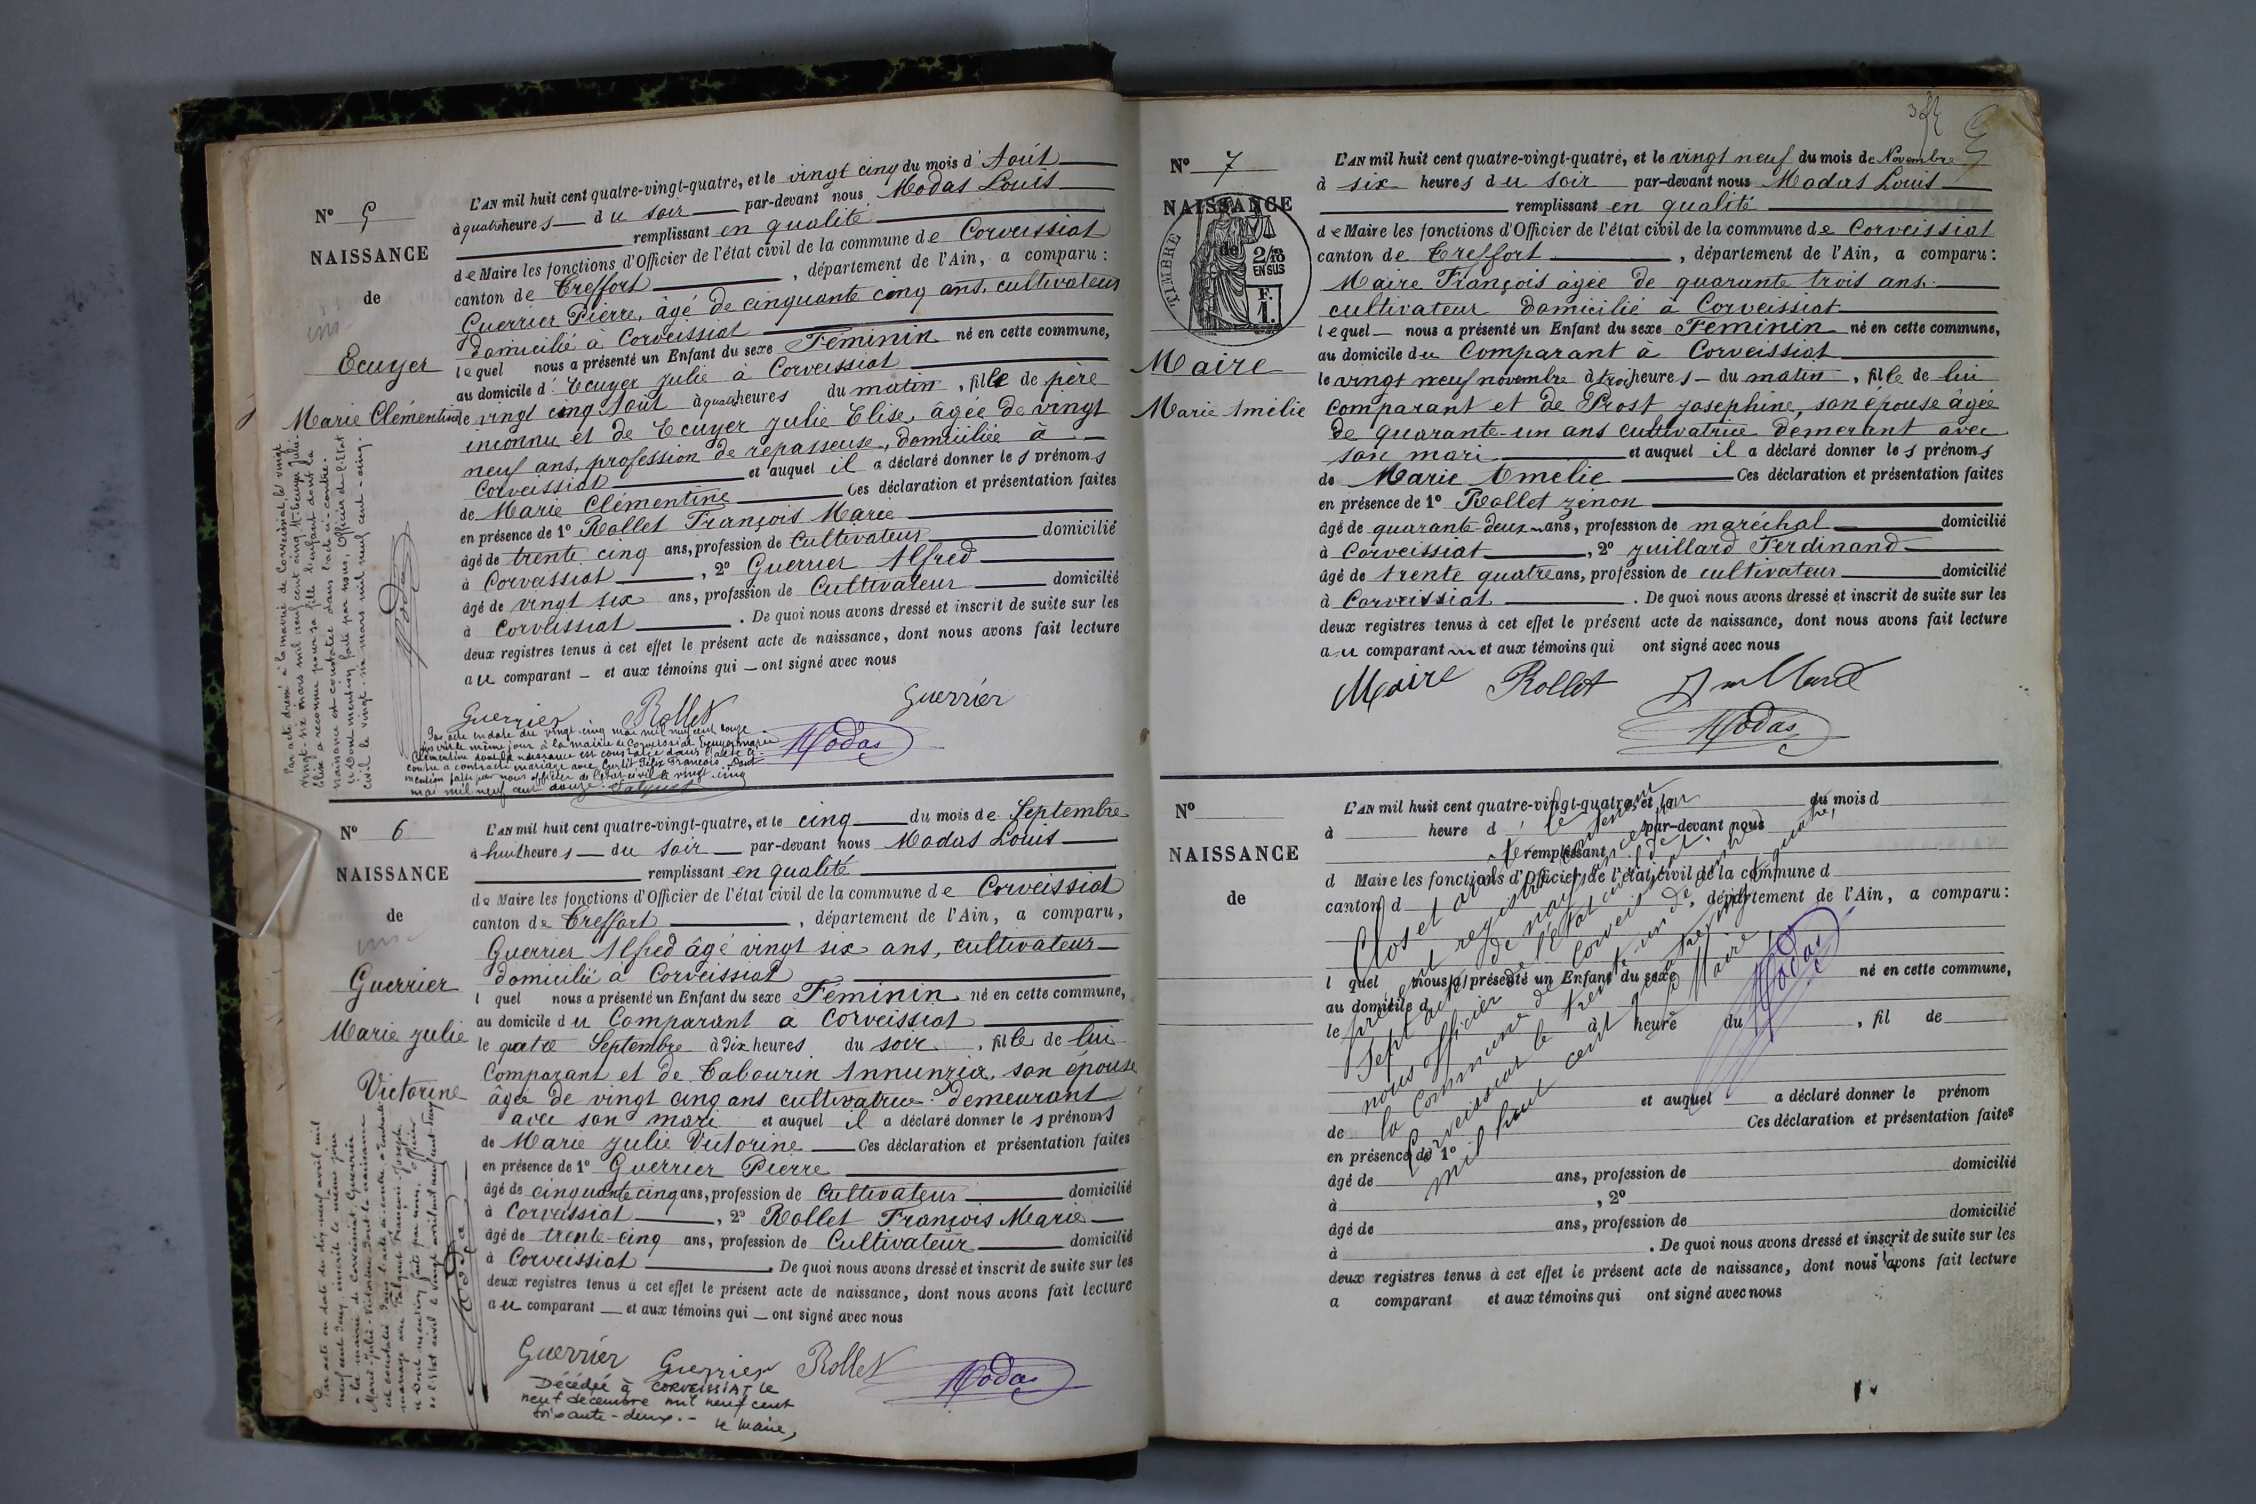 N° 5
NAISSANCE
de
Ecuyer
Marie Clémentine
L'AN mil huit cent quatre-vingt-quatre, et le vingt cinq du mois d'Août
à quatre heures du soir par-devant nous Modas Louis
remplissant en qualité
de Maire les fonctions d'Officier de l'état civil de la commune de Corveissiat
canton de Treffort, département de l'Ain, a comparu :
Guerrier Pierre, âgé de cinquante cinq ans, cultivateur
domicilié à Corveissiat
lequel nous a présenté un Enfant du sexe Féminin né en cette commune,
au domicile d'Ecuyer Julie à Corveissiat
le vingt cinq Août à quatre heures du matin, fille de père
inconnu et de Ecuyer Julie Elise, âgée de vingt
neuf ans, profession de repasseuse, domiciliée à
Corveissiat et auquel il a déclaré donner les prénoms
de Marie Clémentine Ces déclaration et présentation faites
en présence de 1° Rollet François Marie
âgé de trente cinq ans, profession de Cultivateur domicilié
à Corveissiat, 2° Guerrier Alfred
âgé de vingt six ans, profession de Cultivateur domicilié
à Corveissiat. De quoi nous avons dressé et inscrit de suite sur les
deux registres tenus à cet effet le présent acte de naissance, dont nous avons fait lecture
au comparant et aux témoins qui ont signé avec nous
Guerrier Rollet Guerrier
Modas
Par acte dressé à la mairie de Corveissiat, le vingt
vingt-six mars mil neuf cent cinq, Mlle Ecuyer Julie-
Elise a reconnu pour sa fille l'enfant dont la
naissance est constatée dans l'acte ci-contre.
Dont mention faite par nous, Officier de l'Etat
civil le vingt-six mars mil neuf cent-cinq.
Modas
Par acte en date du vingt-cinq mai mil neuf cent douze
inscrit le même jour à la mairie de Corveissiat Ecuyer Marie
Clémentine dont la naissance est constatée dans l'acte ci-
contre a contracté mariage avec Curtil Félix François. Dont
mention faite par nous officier de l'état-civil le vingt-cinq
mai mil neuf cent douze.
N° 6
NAISSANCE
de
Guerrier
Marie Julie
Victorine
L'AN mil huit cent quatre-vingt-quatre, et le cinq du mois de Septembre
à huit heures du soir par-devant nous Modas Louis
remplissant en qualité
de Maire les fonctions d'Officier de l'état civil de la commune de Corveissiat
canton de Treffort, département de l'Ain, a comparu,
Guerrier Alfred âgé vingt six ans, cultivateur
domicilié à Corveissiat
l quel nous a présenté un Enfant du sexe Féminin né en cette commune,
au domicile du Comparant à Corveissiat
le quatre Septembre à dix heures du soir, fille de lui
Comparant et de Tabourin Annunzia, son épouse
âgée de vingt cinq ans cultivatrice demeurant
avec son mari et auquel il a déclaré donner les prénoms
de Marie Julie Victorine Ces déclaration et présentation faites
en présence de 1° Guerrier Pierre
âgé de cinquante cinq ans, profession de Cultivateur domicilié
à Corveissiat, 2° Rollet François Marie
âgé de trente-cinq ans, profession de Cultivateur domicilié
à Corveissiat. De quoi nous avons dressé et inscrit de suite sur les
deux registres tenus à cet effet le présent acte de naissance, dont nous avons fait lecture
au comparant et aux témoins qui ont signé avec nous
Guerrier Guerrier Rollet
Modas
Décédée à CORVEISSIAT le
neuf décembre mil neuf cent
soixante-deux.- Le Maire,
Par acte en date du dix-neuf avril mil
neuf cent inscrit le même jour
à la mairie de Corveissiat, Guerrier
Marie-Julie-Victorine dont la naissance
est constatée dans l'acte ci-contre, a contracté
mariage avec Falquet François-Joseph.
Dont mention faite par nous, officier
de l'état civil le vingt avril mil neuf cent
Modas
N° 7
NAISSANCE
de
TIMBRE
2/10
EN SUS
F.
1.
Maire
Marie Amélie
L'AN mil huit cent quatre-vingt-quatre, et le vingt neuf du mois de Novembre
à six heures du soir par-devant nous Modas Louis
remplissant en qualité
de Maire les fonctions d'Officier de l'état civil de la commune de Corveissiat
canton de Treffort, département de l'Ain, a comparu :
Maire François âgée de quarante trois ans.
cultivateur domicilié à Corveissiat
lequel nous a présenté un Enfant du sexe Féminin né en cette commune,
au domicile du Comparant à Corveissiat
le vingt neuf novembre à trois heures du matin, fille de lui
Comparant et de Prost Josephine, son épouse âgée
de quarante-un ans cultivatrice demerant avec
son mari et auquel il a déclaré donner les prénoms
de Marie Amélie Ces déclaration et présentation faites
en présence de 1° Rollet zénon
âgé de quarante-deux ans, profession de maréchal domicilié
à Corveissiat, 2° Juillard Ferdinand
âgé de trente quatre ans, profession de cultivateur domicilié
à Corveissiat. De quoi nous avons dressé et inscrit de suite sur les
deux registres tenus à cet effet le présent acte de naissance, dont nous avons fait lecture
au comparant et aux témoins qui ont signé avec nous
Maire Rollet Juillard
Modas
N°
NAISSANCE
de
L'AN mil huit cent quatre-vingt-quatre, et le du mois d
à heure d par-devant nous
remplissant
d Maire les fonctions d'Officier de l'état civil de la commune d
canton d, département de l'Ain, a comparu :
l quel nous a présenté un Enfant du sexe né en cette commune,
au domicile d
le à heure du, fil de
et auquel a déclaré donner le prénom
de Ces déclaration et présentation faites
en présence de 1°
âgé de ans, profession de domicilié
à, 2°
âgé de ans, profession de domicilié
à. De quoi nous avons dressé et inscrit de suite sur les
deux registres tenus à cet effet le présent acte de naissance, dont nous avons fait lecture
a comparant et aux témoins qui ont signé avec nous
Clos et arrêté le
présent registre contenant
sept actes de naissance par
nous officier de l'état civil de
la commune de Corveissiat.
Corveissiat le trente-un décembre
mil huit cent quatre vingt quatre,
Le Maire
Modas